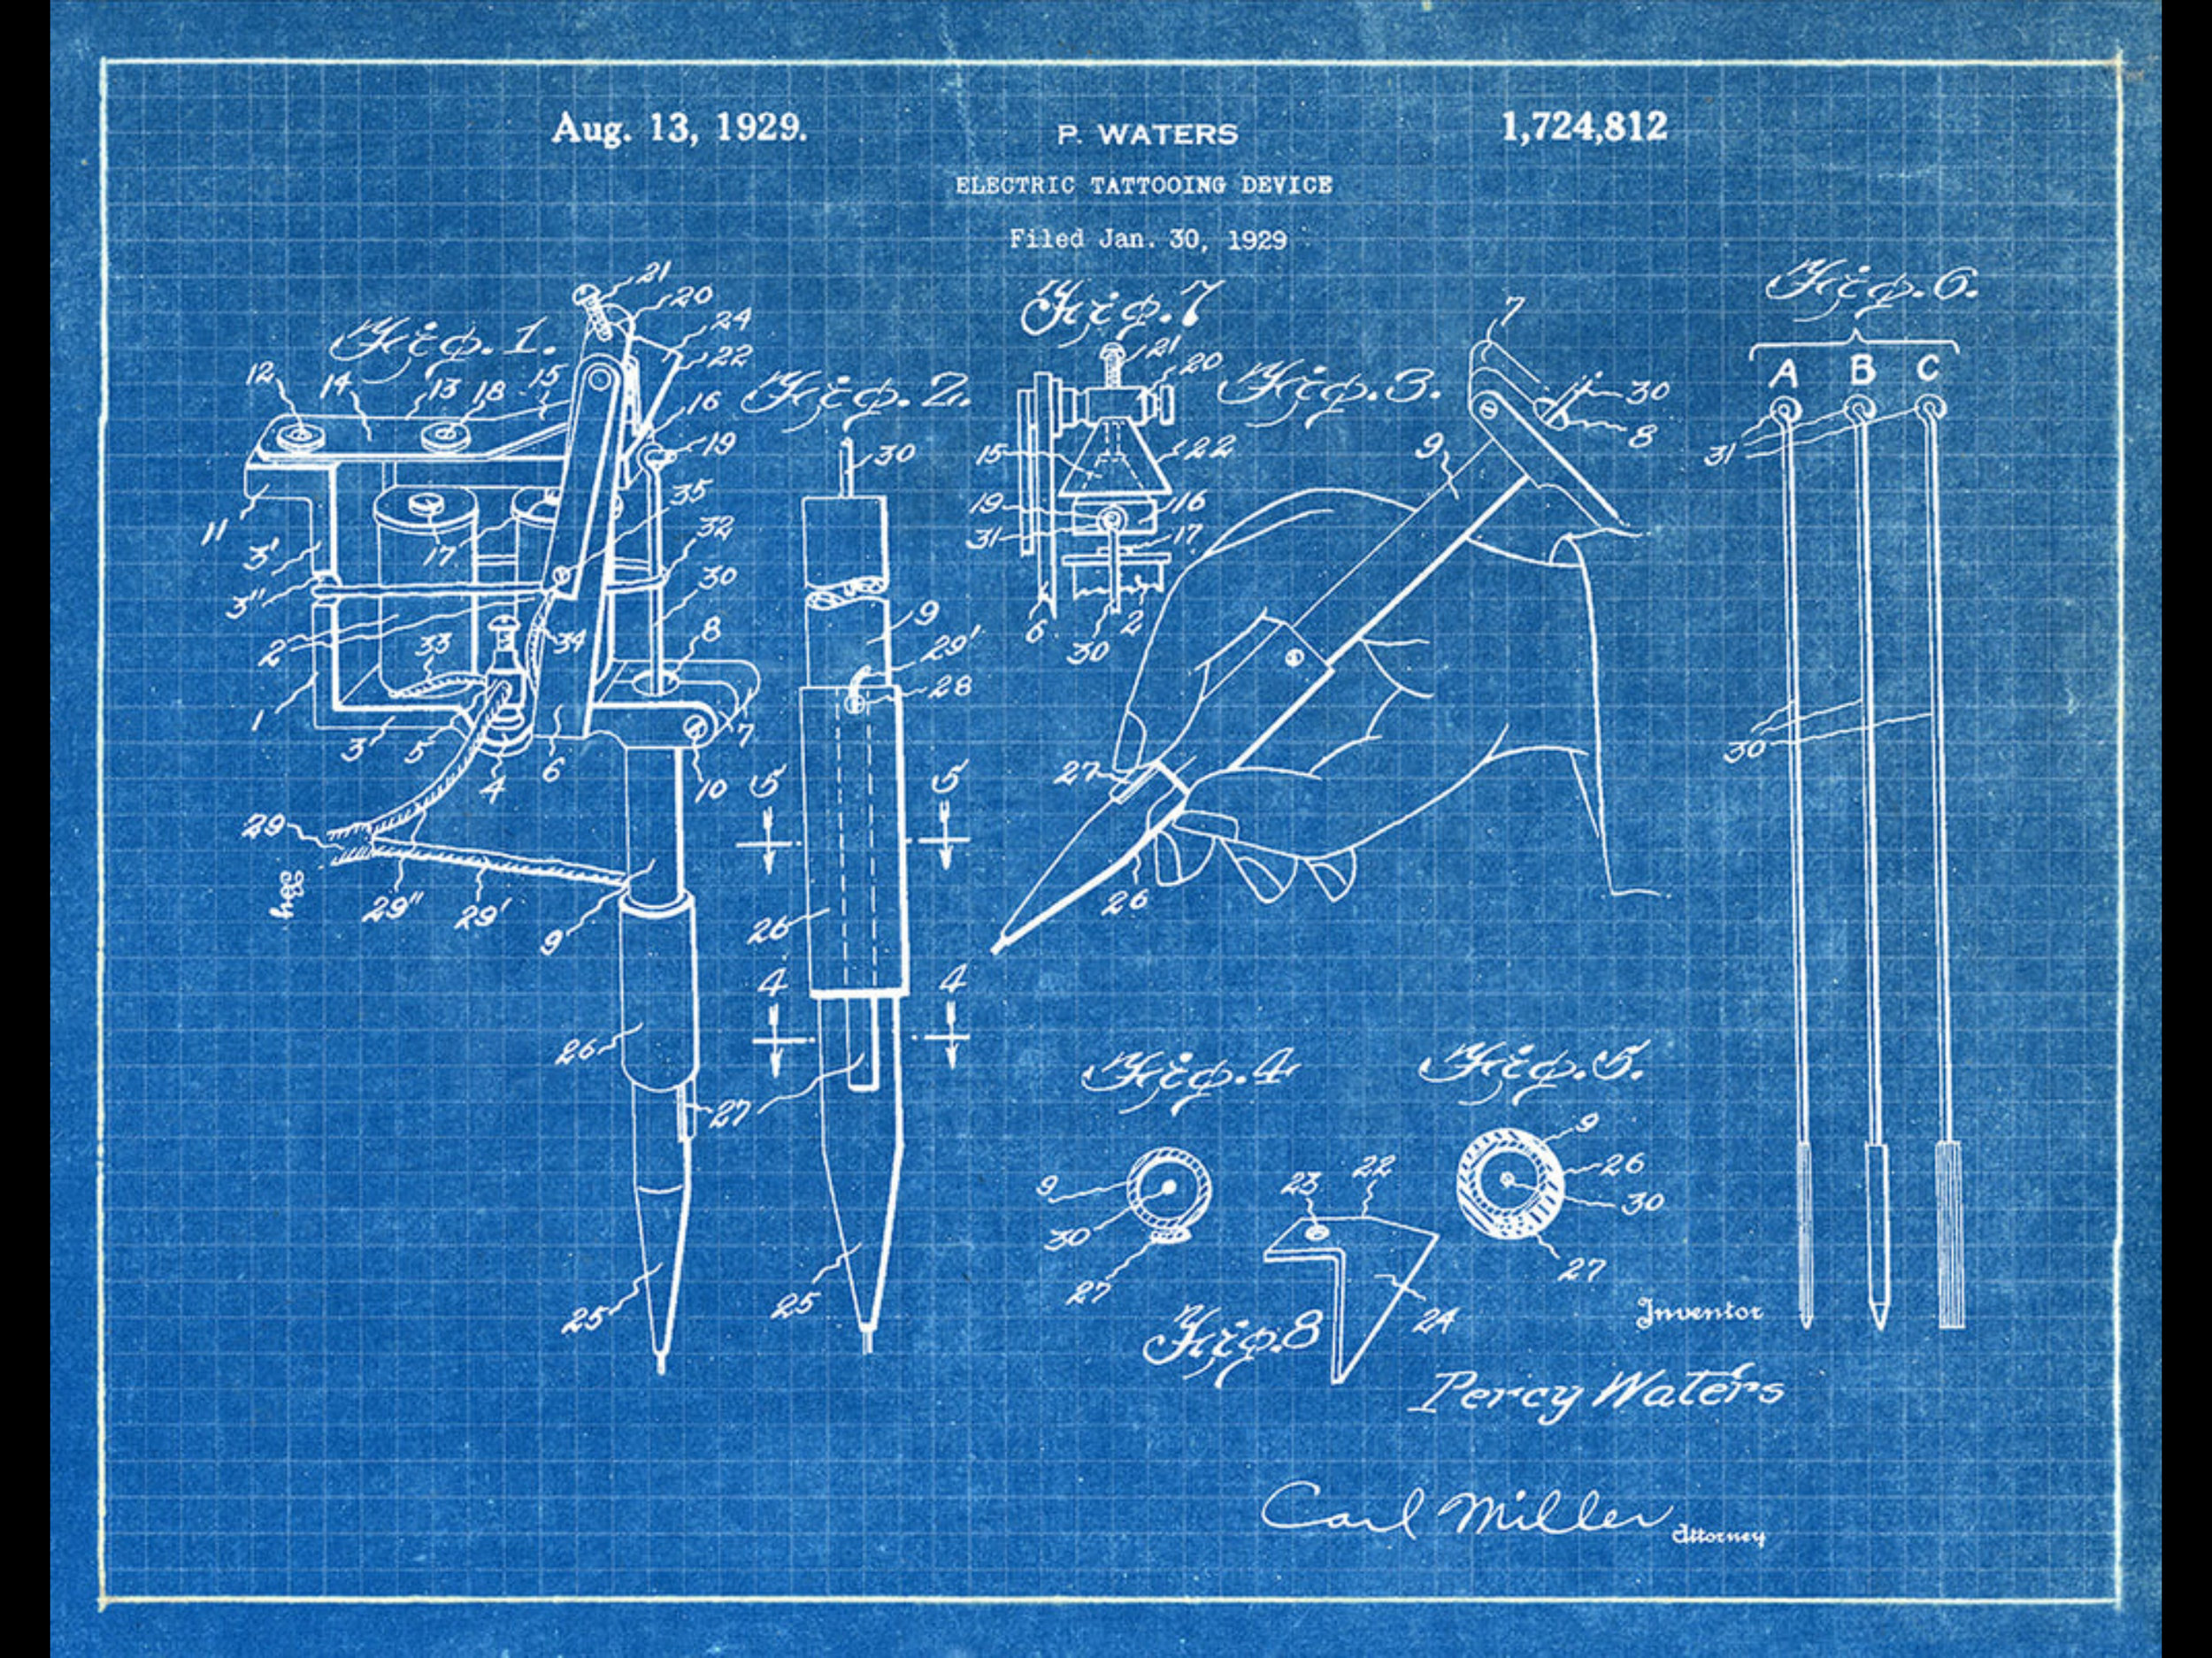 Aug. 13, 1929.
P. WATERS
1,724,812
ELECTRIC TATTOOING DEVICE
Filed Jan. 30, 1929
Fig. 1.
21
20
24
22
12
14
13
18
15
16
19
11
3'
17
35
32
3"
30
2
33
34
8
1
3
5
4
6
7
10
29
29"
29'
9
26
27
25
Fig. 2.
30
9
29'
28
5
5
26
4
4
25
Fig. 7
21
20
15
22
19
16
31
17
6
30
2
Fig. 3.
7
30
8
9
27
26
Fig. 6.
A B C
31
30
Fig. 4
9
30
27
Fig. 5.
9
26
30
27
23
22
24
Fig. 8
Inventor
Percy Waters
Carl Miller
Attorney